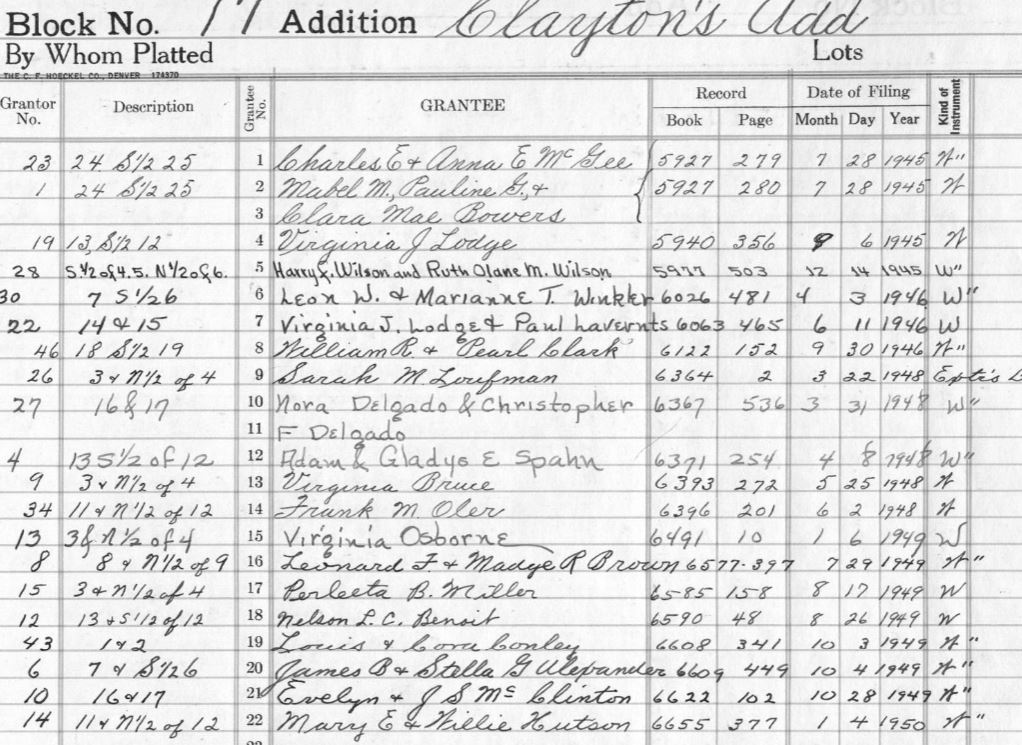 Block No. 17 Addition Clayton's Add
By Whom Platted Lots
THE C. F. HOECKEL CO., DENVER 174370
Grantor No. Description Grantee No. GRANTEE Record Book Page Date of Filing Month Day Year Kind of Instrument
23 24 S1/2 25 1 Charles E & Anna E McGee 5927 279 7 28 1945 W"
1 24 S1/2 25 2 Mabel M, Pauline G, & 5927 280 7 28 1945 W
3 Clara Mae Bowers
19 13, S1/2 12 4 Virginia J Lodge 5940 356 6 1945 W
28 S 1/2 of 4. 5. N 1/2 of 6. 5 Harry J. Wilson and Ruth Olane M. Wilson 5977 503 12 14 1945 W"
30 7 S 1/2 6 6 Leon W. & Marianne T. Winkler 6026 481 4 3 1946 W"
22 14 & 15 7 Virginia J. Lodge & Paul Lavernts 6063 465 6 11 1946 W
46 18 S1/2 19 8 William R. & Pearl Clark 6122 152 9 30 1946 W"
26 3 & N1/2 of 4 9 Sarah M Loufman 6364 2 3 22 1948
27 16 & 17 10 Nora Delgado & Christopher 6367 536 3 31 1948 W"
11 F Delgado
4 13 S1/2 of 12 12 Adam & Gladys E Spahn 6371 254 4 8 1948 W"
9 3 & N1/2 of 4 13 Virginia Bruce 6393 272 5 25 1948 W
34 11 & N1/2 of 12 14 Frank M Oler 6396 201 6 2 1948 W
13 3 & N 1/2 of 4 15 Virginia Osborne 6491 10 1 6 1949 W
8 8 & N1/2 of 9 16 Leonard F & Madge R Brown 6577-397 7 29 1949 W"
15 3 & N1/2 of 4 17 Perleeta B. Miller 6585 158 8 17 1949 W
12 13 & S1/2 of 12 18 Nelson L. C. Benoit 6590 48 8 26 1949 W
43 1 & 2 19 Louis & Cora Conley 6608 341 10 3 1949 W"
6 7 & S1/2 6 20 James B & Stella G Alexander 6609 449 10 4 1949 W"
10 16 & 17 21 Evelyn & J S McClinton 6622 102 10 28 1949 W"
14 11 & N1/2 of 12 22 Mary E & Willie Hutson 6655 377 1 4 1950 W"